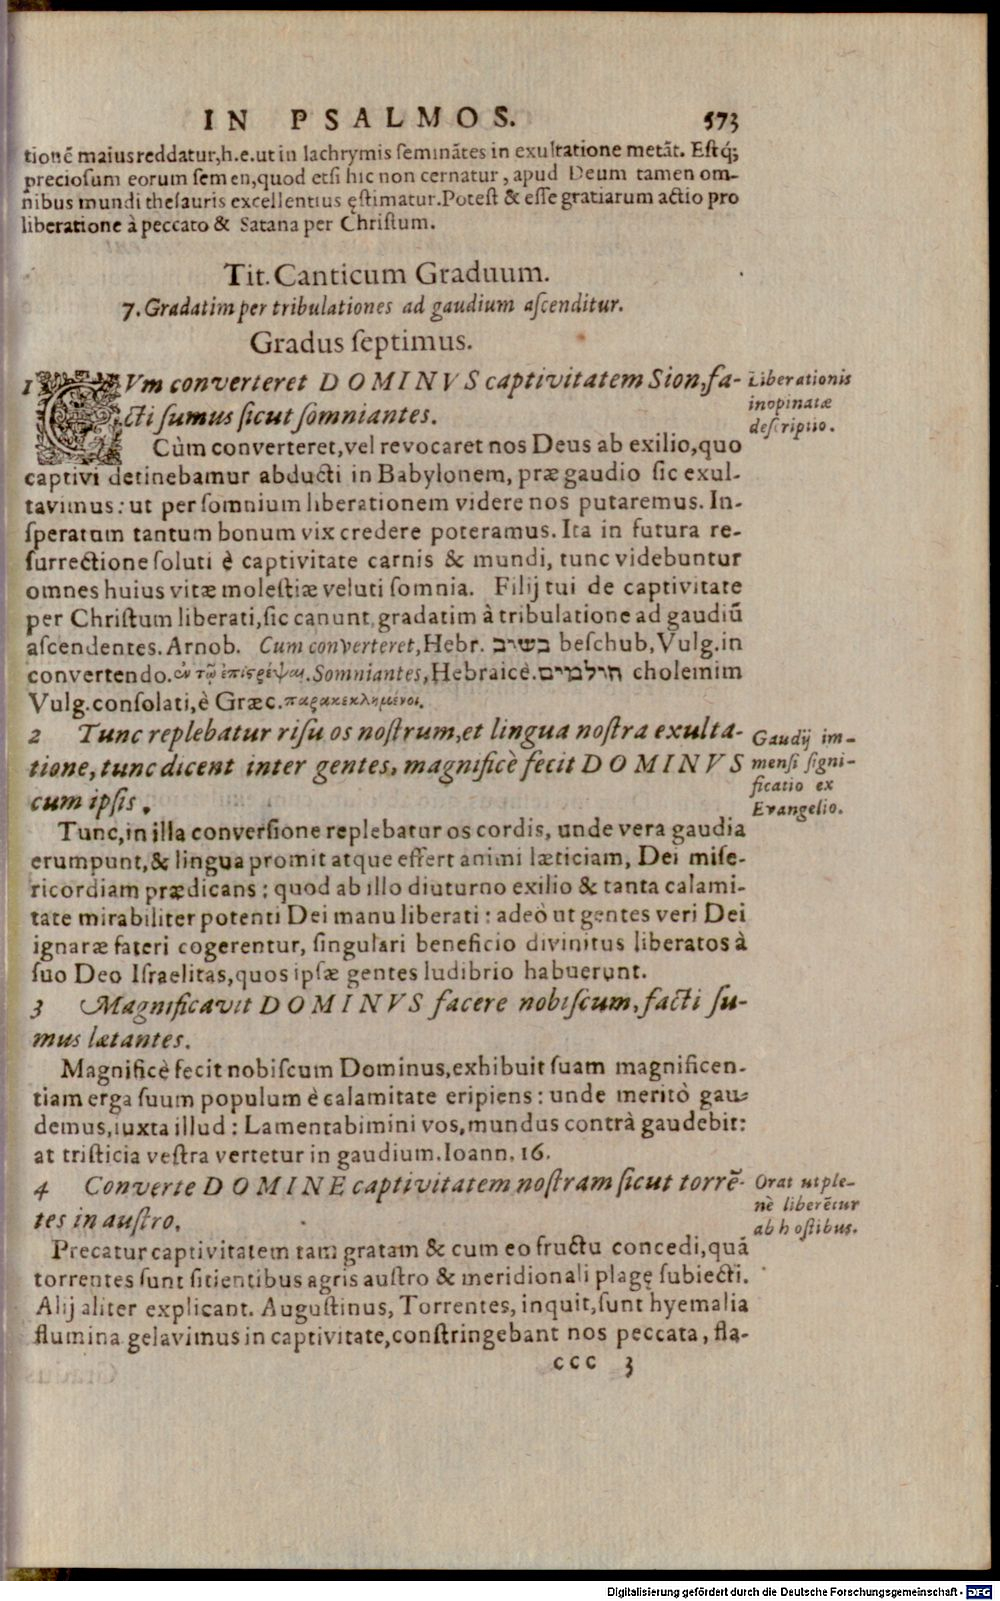 IN PSALMOS. 573
tionē maius reddatur, h. e. ut in lachrymis seminātes in exultatione metāt. Estq́;
preciosum eorum semen, quod etsi hic non cernatur, apud Deum tamen om-
nibus mundi thesauris excellentius ęstimatur. Potest & esse gratiarum actio pro
liberatione à peccato & Satana per Christum.
Tit. Canticum Graduum.
7. Gradatim per tribulationes ad gaudium ascenditur.
Gradus septimus.
1 CVm converteret DOMINVS captivitatem Sion, fa-
cti sumus sicut somniantes.
Liberationis
inopinatæ
descriptio.
Cùm converteret, vel revocaret nos Deus ab exilio, quo
captivi detinebamur abducti in Babylonem, præ gaudio sic exul-
tavimus: ut per somnium liberationem videre nos putaremus. In-
speratum tantum bonum vix credere poteramus. Ita in futura re-
surrectione soluti è captivitate carnis & mundi, tunc videbuntur
omnes huius vitæ molestiæ veluti somnia. Filij tui de captivitate
per Christum liberati, sic canunt, gradatim à tribulatione ad gaudiū
ascendentes. Arnob. Cum converteret, Hebr. בשוב beschub, Vulg. in
convertendo. ἐν τῷ ἐπιστρέψαι. Somniantes, Hebraicè. חולמים cholemim
Vulg. consolati, è Græc. παρακεκλημένοι.
2 Tunc replebatur risu os nostrum, et lingua nostra exulta-
tione, tunc dicent inter gentes, magnificè fecit DOMINVS
cum ipsis.
Gaudij im-
mensi signi-
ficatio ex
Evangelio.
Tunc, in illa conversione replebatur os cordis, unde vera gaudia
erumpunt, & lingua promit atque effert animi læticiam, Dei mise-
ricordiam prædicans: quod ab illo diuturno exilio & tanta calami-
tate mirabiliter potenti Dei manu liberati: adeò ut gentes veri Dei
ignaræ fateri cogerentur, singulari beneficio divinitus liberatos à
suo Deo Israelitas, quos ipsæ gentes ludibrio habuerunt.
3 Magnificavit DOMINVS facere nobiscum, facti su-
mus lætantes.
Magnificè fecit nobiscum Dominus, exhibuit suam magnificen-
tiam erga suum populum è calamitate eripiens: unde meritò gau-
demus, iuxta illud: Lamentabimini vos, mundus contrà gaudebit:
at tristicia vestra vertetur in gaudium. Ioann. 16.
4 Converte DOMINE captivitatem nostram sicut torrē-
tes in austro.
Orat ut ple-
nè liberētur
ab hostibus.
Precatur captivitatem tam gratam & cum eo fructu concedi, quā
torrentes sunt sitientibus agris austro & meridionali plagę subiecti.
Alij aliter explicant. Augustinus, Torrentes, inquit, sunt hyemalia
flumina gelavimus in captivitate, constringebant nos peccata, fla-
ccc 3
Digitalisierung gefördert durch die Deutsche Forschungsgemeinschaft - DFG